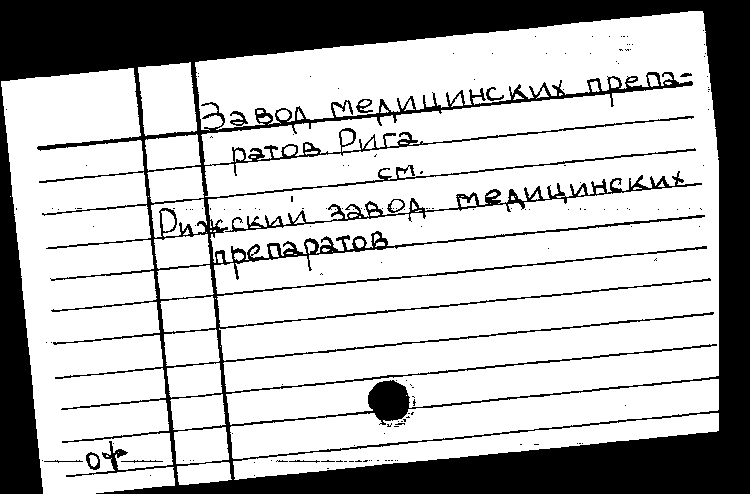 Завод медицинских препа=
ратов Рига.
см.
Рижский завод медицинских
препаратов.
оф